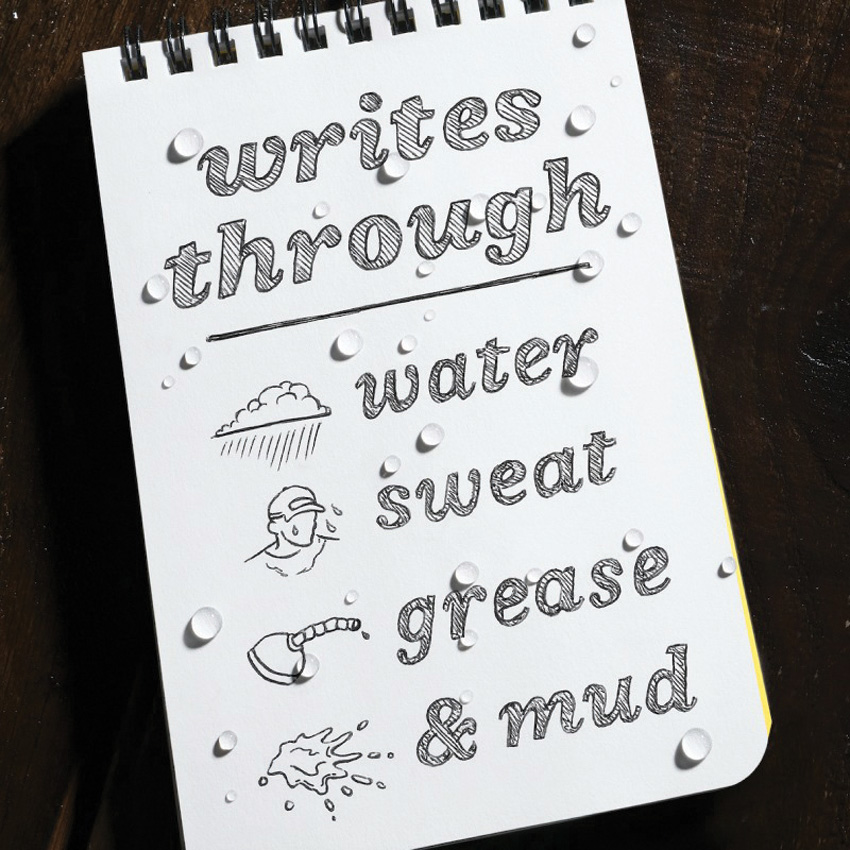 writes
through
water
sweat
grease
& mud